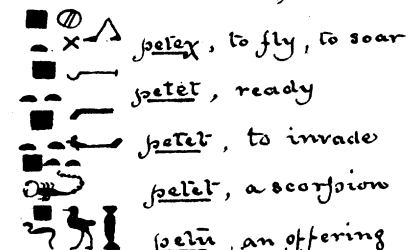 petex, to fly, to soar
petet, ready
petet, to invade
petet, a scorpion
petū, an offering